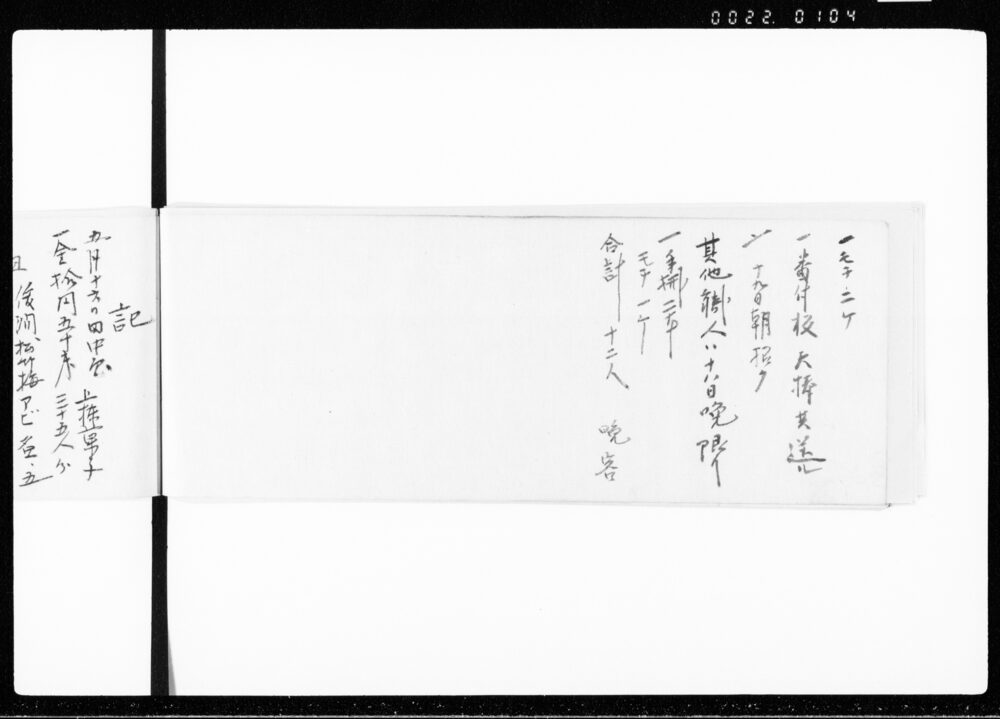 0022.0104
一モチ 二ケ
一番付板 大棒共送ル
一、十九日朝招ク
其他職人ハ十八日晩限
一手拂 二本
モチ 一ケ
合計 十二人 晩客
記
九月十六日 田中 上棟菓子
一金拾円五十戋 三十五人分
松竹梅